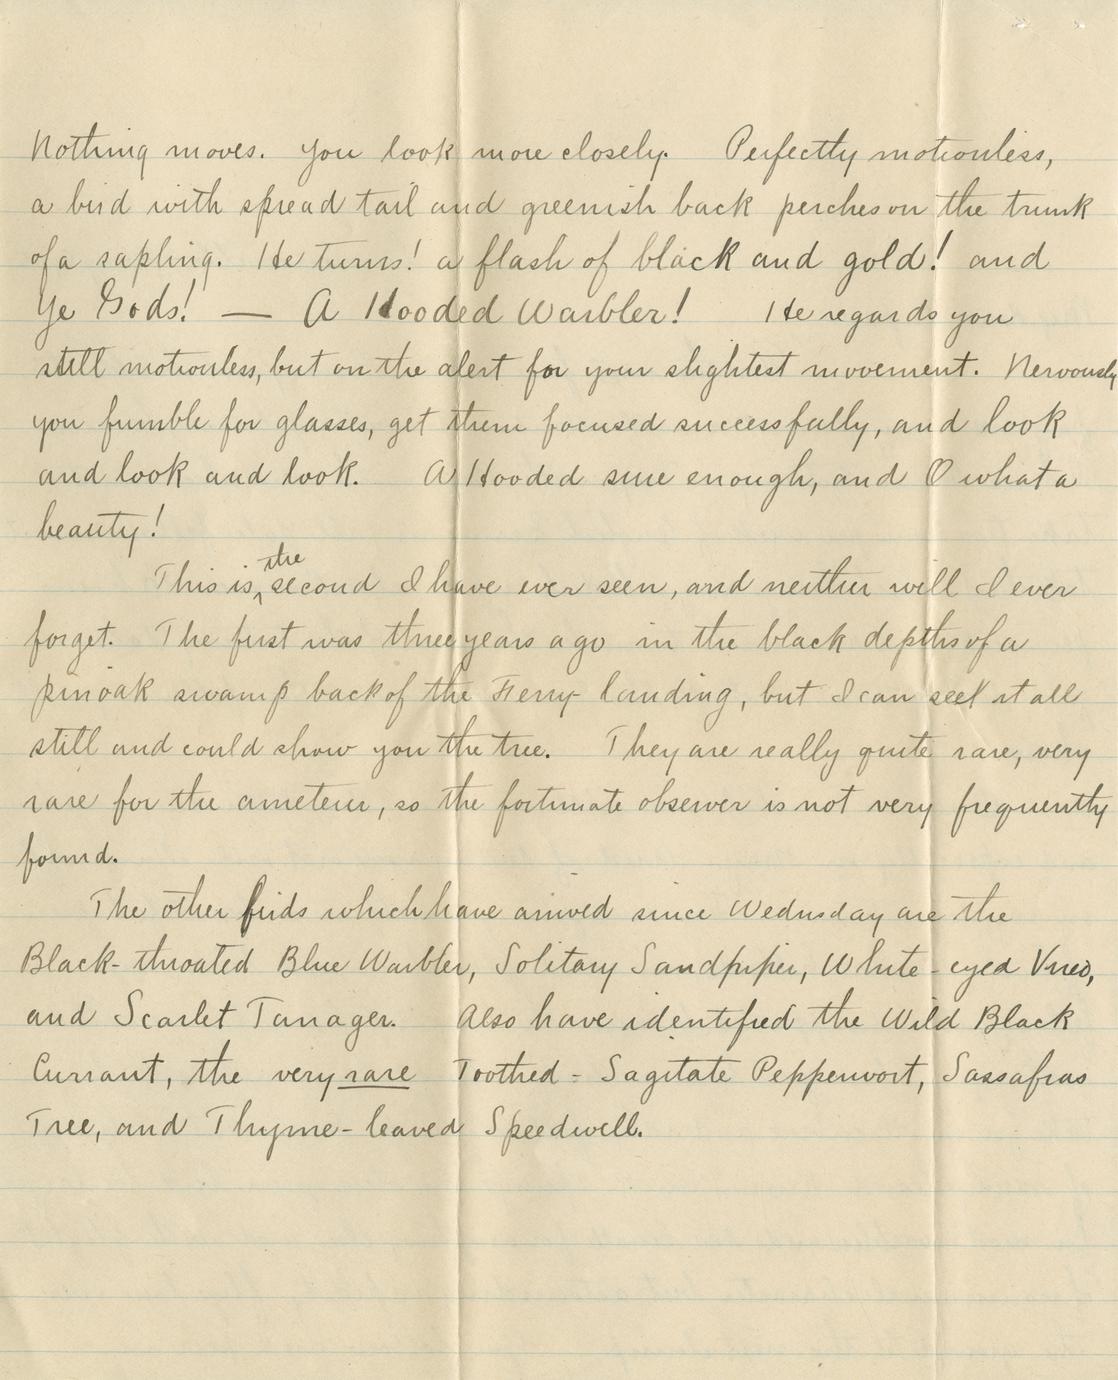 Nothing moves. You look more closely. Perfectly motionless,
a bird with spread tail and greenish back perches on the trunk
of a sapling. He turns! a flash of black and gold! and
Ye Gods! — A Hooded Warbler! He regards you
still motionless, but on the alert for your slightest movement. Nervously
you fumble for glasses, get them focused successfully, and look
and look and look. A Hooded sure enough, and O what a
beauty!
This is the second I have ever seen, and neither will I ever
forget. The first was three years ago in the black depths of a
pinoak swamp back of the Ferry landing, but I can see it all
still and could show you the tree. They are really quite rare, very
rare for the ameteur, so the fortunate observer is not very frequently
found.
The other birds which have arrived since Wednsday are the
Black-throated Blue Warbler, Solitary Sandpiper, White-eyed Vireo,
and Scarlet Tanager. Also have identified the Wild Black
Currant, the very rare Toothed-Sagitate Pepperwort, Sassafras
Tree, and Thyme-leaved Speedwell.